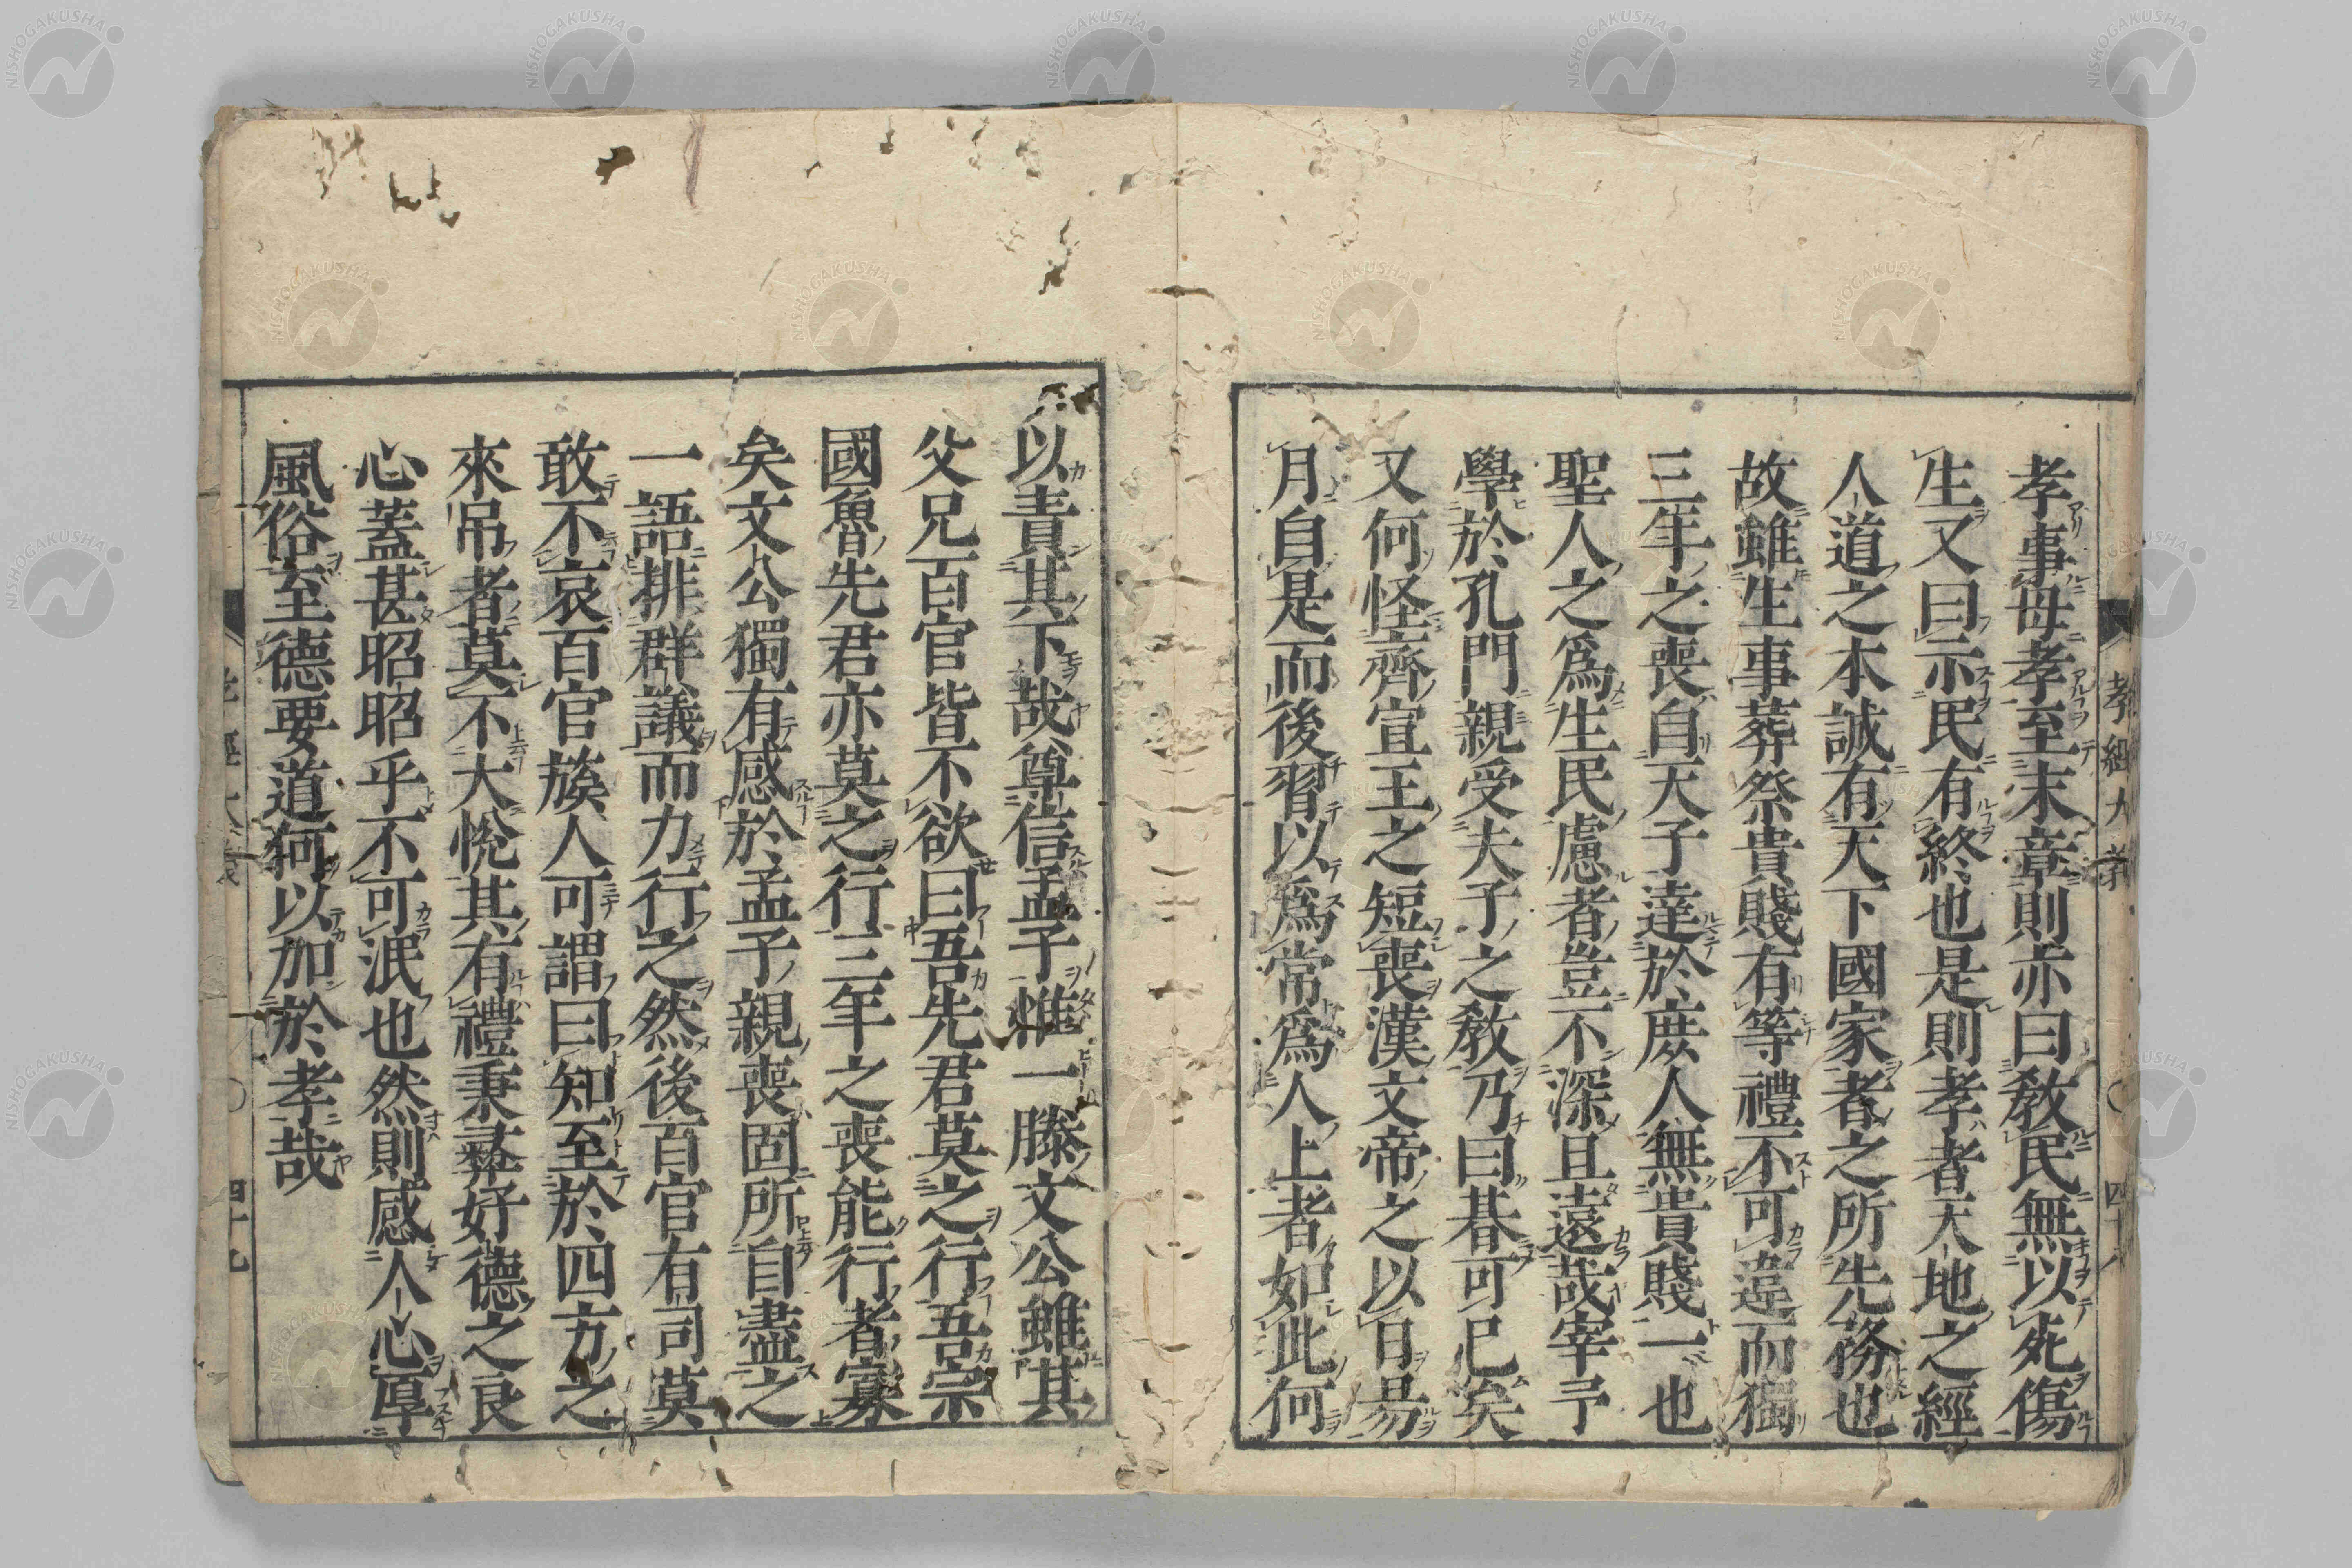 孝事母孝至末章則亦曰教民無以死傷
生又曰示民有終也是則孝者天地之經
人道之本誠有天下國家者之所先務也
故雖生事葬祭貴賤有等禮不可違而獨
三年之喪自天子達於庶人無貴賤一也
聖人之爲生民慮者豈不深且遠哉宰予
學於孔門親受夫子之教乃曰朞可已矣
又何怪齊宣王之短喪漢文帝之以日易
月自是而後習以爲常爲人上者如此何
以責其下哉尊信孟子惟一滕文公雖其
父兄百官皆不欲曰吾先君莫之行吾宗
國魯先君亦莫之行三年之喪能行者寡
矣文公獨有感於孟子親喪固所自盡之
一語排群議而力行之然後百官有司莫
敢不哀百官族人可謂曰知至於四方之
來吊者莫不大悅其有禮秉彝好德之良
心蓋甚昭昭乎不可泯也然則感人心厚
風俗至德要道何以加於孝哉